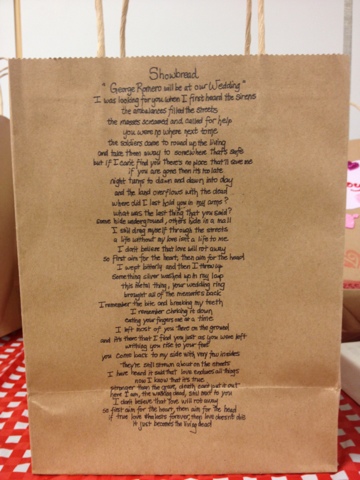 Showbread
" George Romero will be at our Wedding "
I was looking for you when I first heard the sirens
the ambulances filled the streets
the masses screamed and called for help
you were no where next to me
the soldiers came to round up the living
and take them away to somewhere that's safe
but if I can't find you there's no place that'll save me
if you are gone then it's too late
night turns to dawn and dawn into day
and the land overflows with the dead
where did I last hold you in my arms?
what was the last thing that you said?
some hide underground, others hide in a mall
I still drag myself through the streets
a life without my love isn't a life to me
I don't believe that love will rot away
so first aim for the heart, then aim for the head
I wept bitterly and then I threw up
Something silver washed up in my lap
this fatal thing, your wedding ring
brought all of the memories back
I remember the bite and breaking my teeth
I remember choking it down
eating your fingers one at a time
I left most of you there on the ground
and it's there that I find you just as you were left
writhing you rise to your feet
you come back to my side with very few insides
they're still strewn about on the streets
I have heard it said that love endures all things
now I know that it's true
stronger than the grave, death can't put it out
here I am, the walking dead, still next to you
I don't believe that love will rot away
so first aim for the heart, then aim for the head
if true love she lasts forever, then love doesn't die
it just becomes the living dead